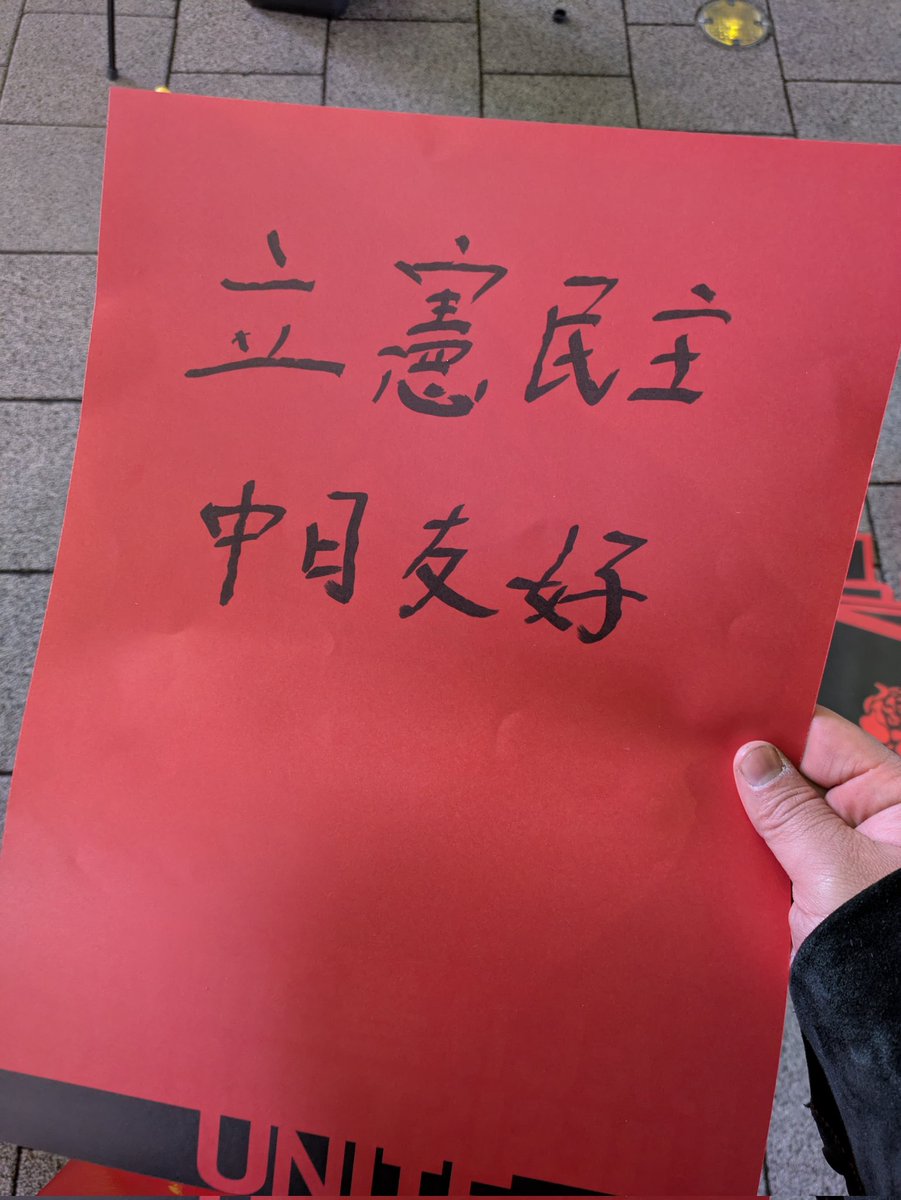 立憲民主
中日友好
UNIT